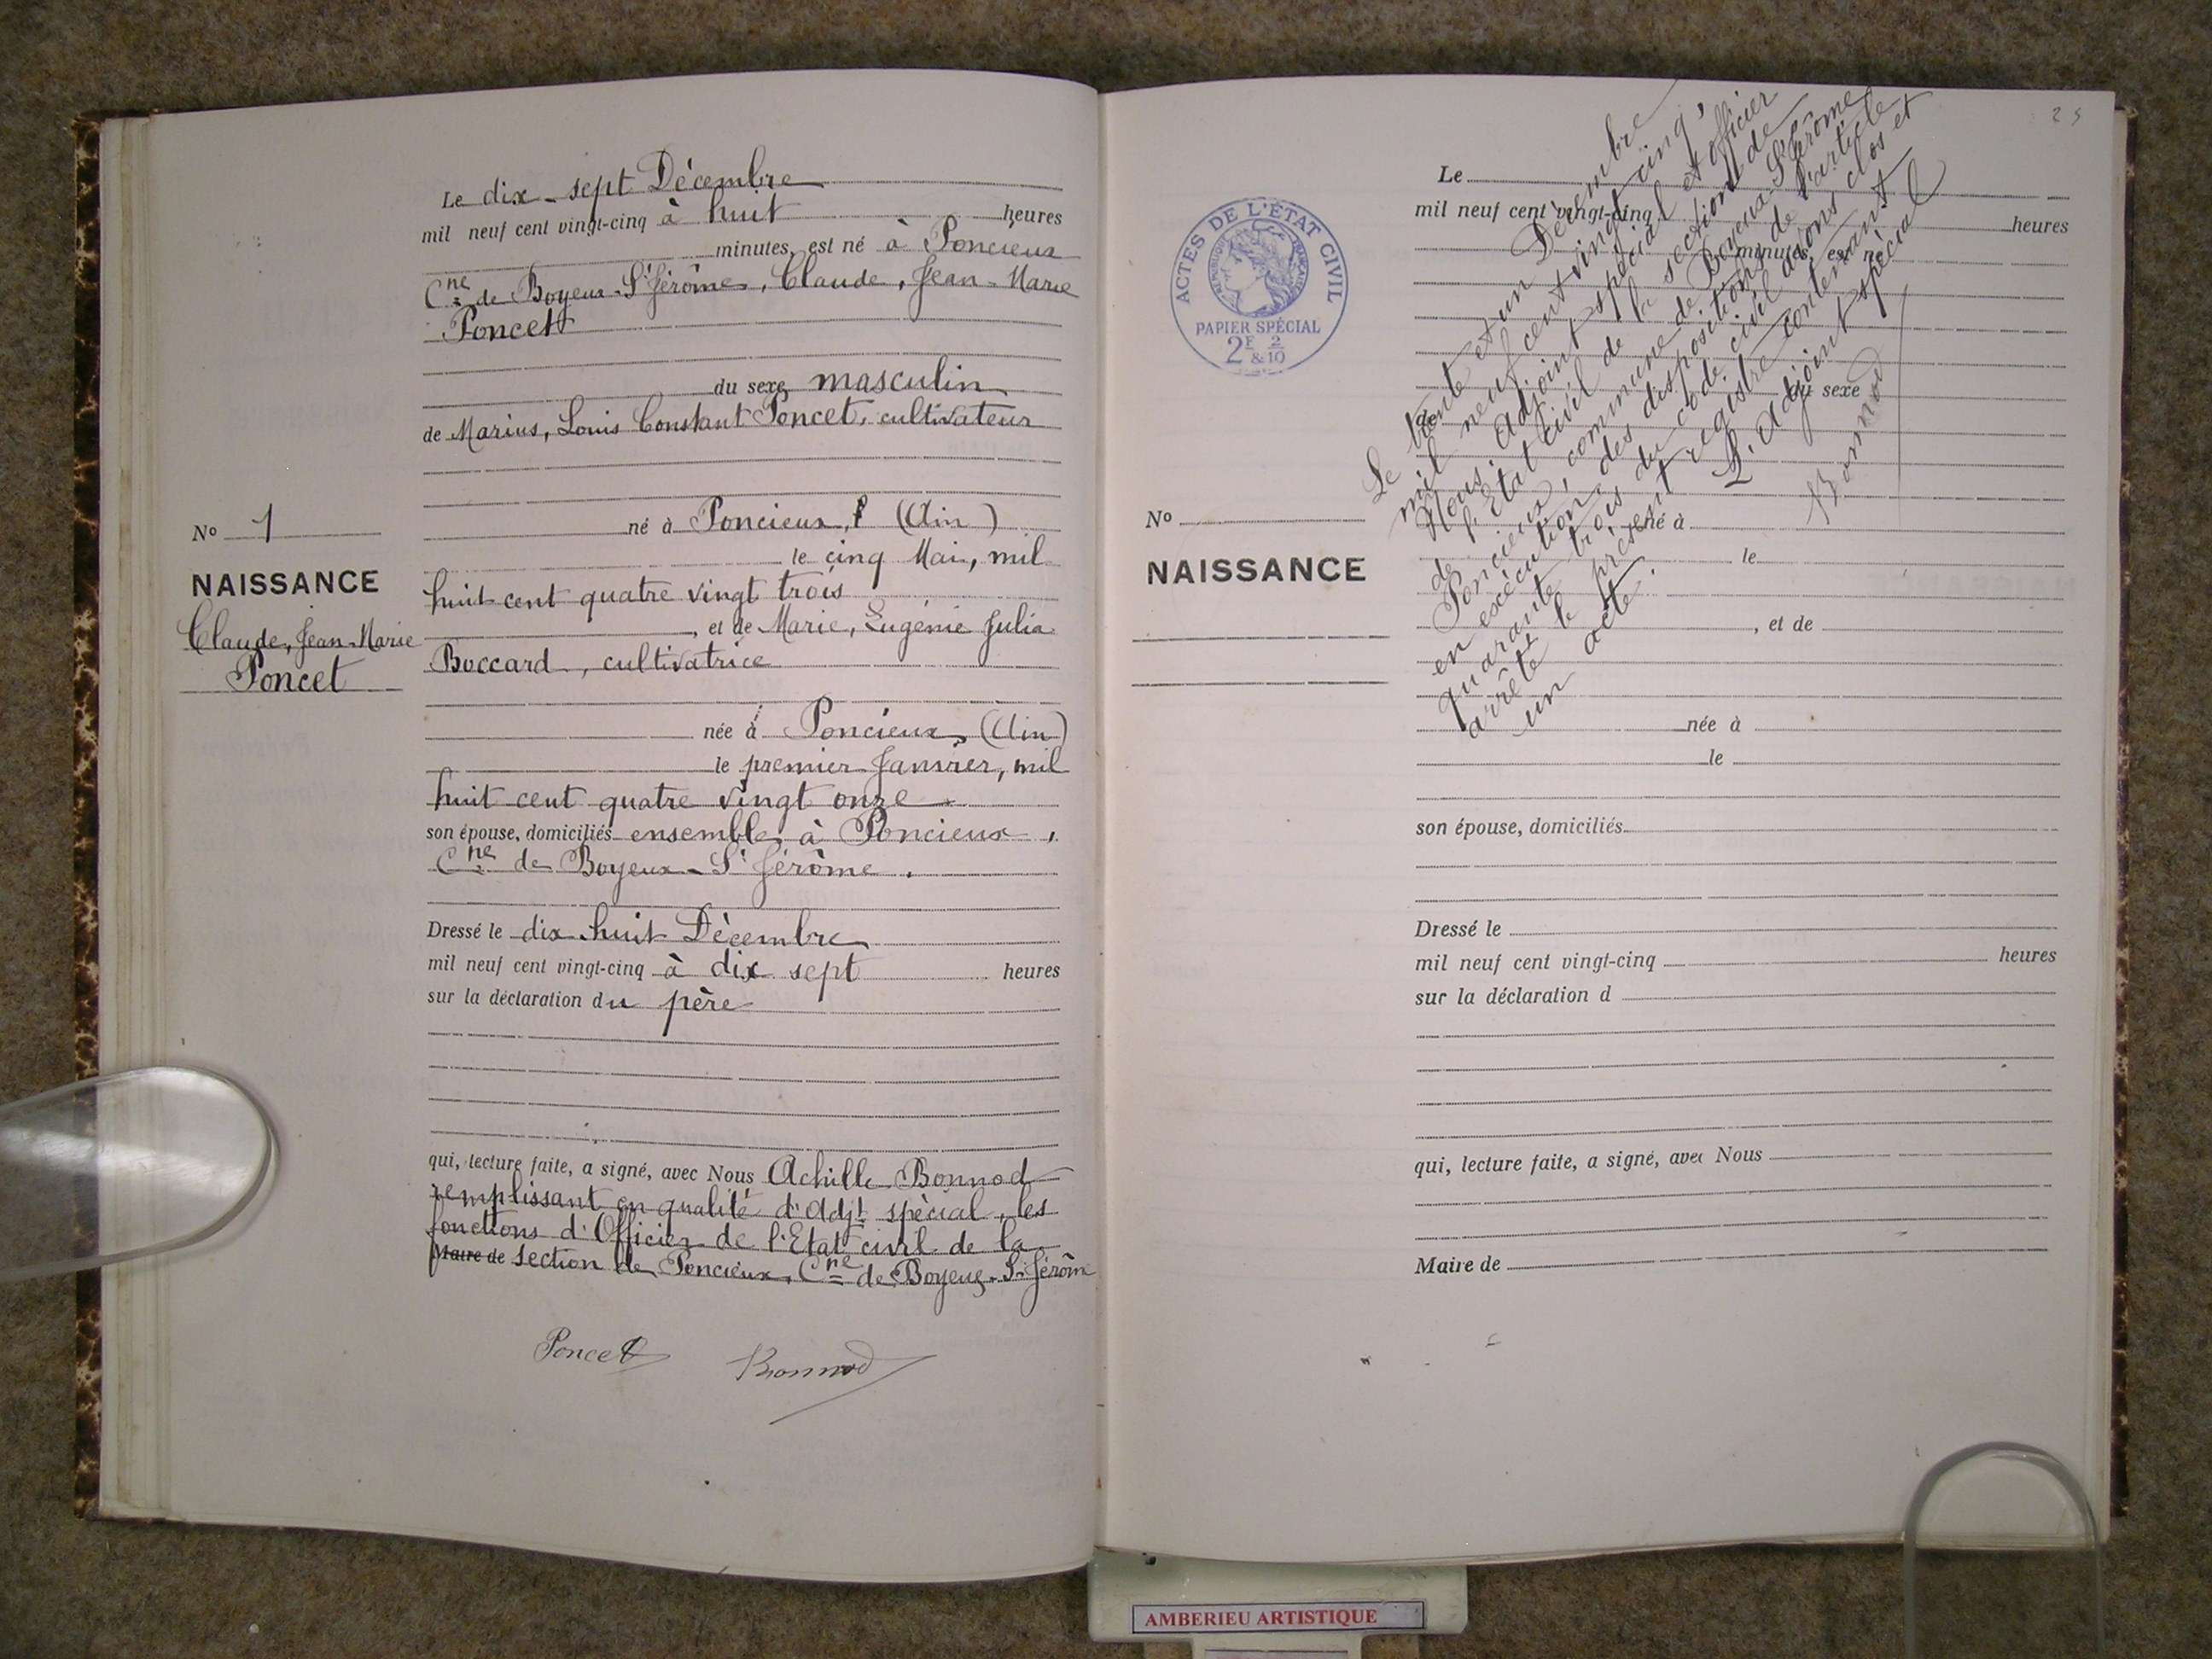 Le dix-sept Décembre
mil neuf cent vingt-cinq à huit heures
minutes, est né à Poncieux
Cne de Boyeux-St Jérôme, Claude, Jean-Marie
Poncet
du sexe masculin
de Marius, Louis Constant Poncet, cultivateur
né à Poncieux, (Ain)
le cinq Mai, mil
huit cent quatre vingt trois
, et de Marie, Eugénie Julia
Boccard, cultivatrice
née à Poncieux, (Ain)
le premier Janvier, mil
huit cent quatre vingt onze
son épouse, domiciliés ensemble à Poncieux,
Cne de Boyeux-St Jérôme.
Dressé le dix huit Décembre
mil neuf cent vingt-cinq à dix sept heures
sur la déclaration du père
qui, lecture faite, a signé, avec Nous Achille Bonnod
remplissant en qualité d'Adjt spécial, les
fonctions d'Officier de l'Etat civil de la
Maire de section de Poncieux, Cne de Boyeux-St Jérôme
Poncet Bonnod
No 1
NAISSANCE
Claude, Jean-Marie
Poncet
25
ACTES DE L'ÉTAT CIVIL
RÉPUBLIQUE FRANÇAISE
PAPIER SPÉCIAL
2F & 2/10
No
NAISSANCE
Le
mil neuf cent vingt-cinq heures
minutes, est né
du sexe
de
né à
le
, et de
née à
le
son épouse, domiciliés
Dressé le
mil neuf cent vingt-cinq heures
sur la déclaration d
qui, lecture faite, a signé, avec Nous
Maire de
Le trente et un Décembre
mil neuf cent vingt cinq,
Nous, Adjoint spécial et officier
de l'Etat civil de la section de
Poncieux, commune de Boyeux-St-Jérôme
en exécution des dispositions de l'article
quarante trois du code civil avons clos et
arrêté le présent registre contenant
un acte.
L'Adjoint spécial
Bonnod
AMBERIEU ARTISTIQUE